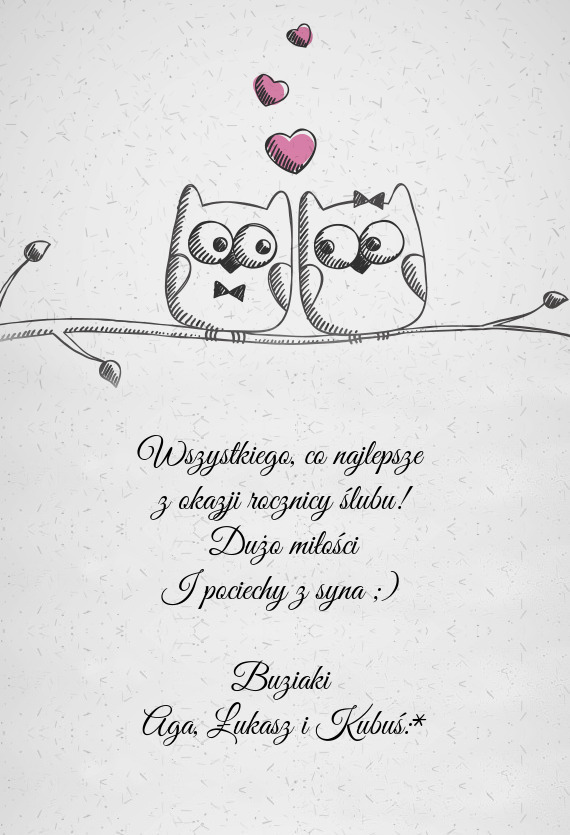 Wszystkiego, co najlepsze
z okazji rocznicy ślubu!
Dużo miłości
I pociechy z syna ;)
Buziaki
Aga, Łukasz i Kubuś:*